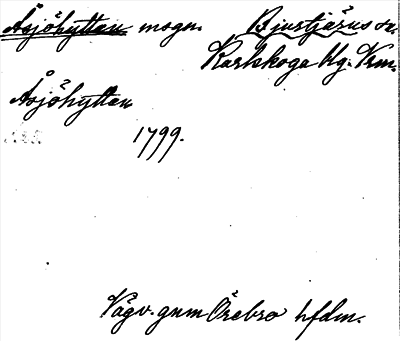 Åsjöhyttan mogn. Bjurtjärns sn.
Karlskoga bg. Vrm.
Åsjöhyttan
1799.
Vägv. gnm Örebro hfdm.